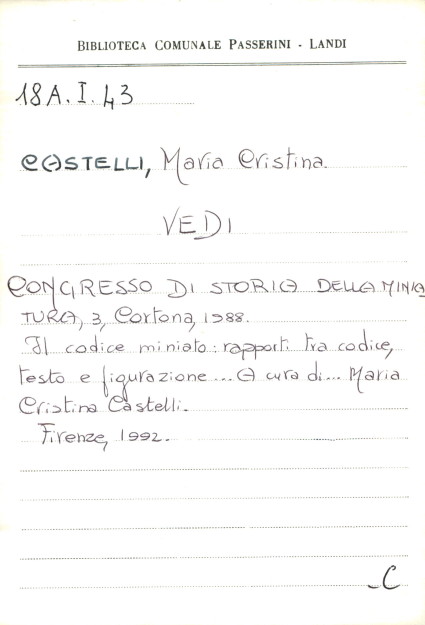 BIBLIOTECA COMUNALE PASSERINI - LANDI
18A.I.43
CASTELLI, Maria Cristina.
VEDI
CONGRESSO DI STORIA DELLA MINIA
TURA, 3, Cortona, 1988.
Il codice miniato: rapporti tra codice,
testo e figurazione... A cura di... Maria
Cristina Castelli.
Firenze, 1992.
-C